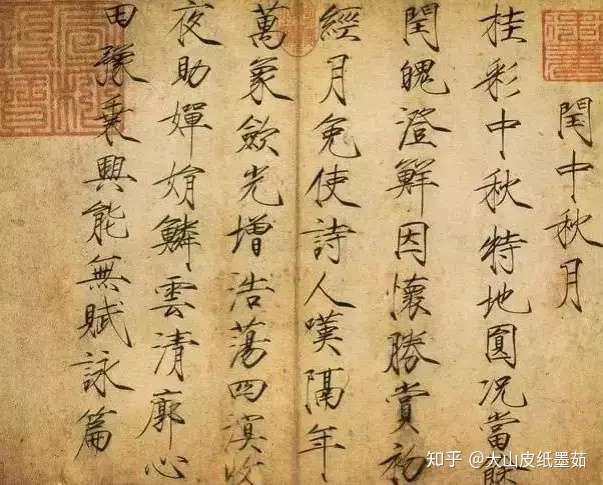 閏中秋月
桂彩中秋特地圓況當餘
閏魄澄鮮因懷勝賞初
經月免使詩人嘆隔年
萬象斂光增浩蕩四溟收
夜助嬋娟鱗雲清廓心
田豫乘興能無賦詠篇
知乎 @大山皮纸墨茹